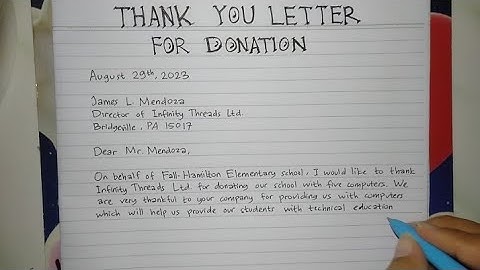 THANK YOU LETTER
FOR DONATION
August 29th, 2023
James L. Mendoza
Director of Infinity Threads Ltd.
Bridgeville, PA 15017
Dear Mr. Mendoza,
On behalf of Fall-Hamilton Elementary school, I would like to thank
Infinity Threads Ltd. for donating our school with five computers. We
are very thankful to your company for providing us with computers
which will help us provide our students with technical education